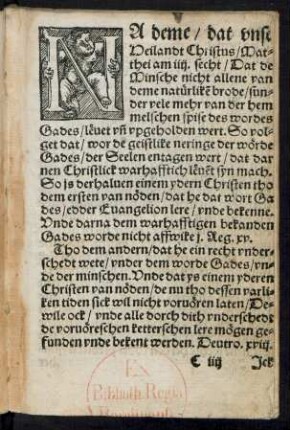 NA deme / dat vnse
Heilandt Christus / Mat-
thei am iiij. secht / Dat de
Minsche nicht allene van
deme natürlikẽ brode / sün-
der vele mehr van der hem
melschen spise des wordes
Gades / leuet vñ vpgeholden wert. So vol-
get dat / wor de geistlike neringe der wörde
Gades / der Seelen entagen wert / dat dar
nen Christlick warhafftich leuẽt syn mach.
So is derhaluen einem ydern Christen tho
dem ersten van nöden / dat he dat wort Ga-
des / edder Euangelion lere / vnde bekenne.
Vnde darna dem warhafftigen bekanden
Gades worde nicht affwike j. Reg. xv.
Tho dem andern / dat he ein recht vnder-
schedt wete / vnder dem worde Gades / vn-
de der minschen. Vnde dat ys einem yderen
Christen van nöden / de nu tho dessen varli-
ken tiden sick wil nicht voruören laten / De-
wile ock / vnde alle dorch dith vnderschedt
de voruöreschen ketterschen lere mögen ge-
funden vnde bekent werden. Deutro. xviij.
C iiij Ick
Ex
Biblioth. Regia